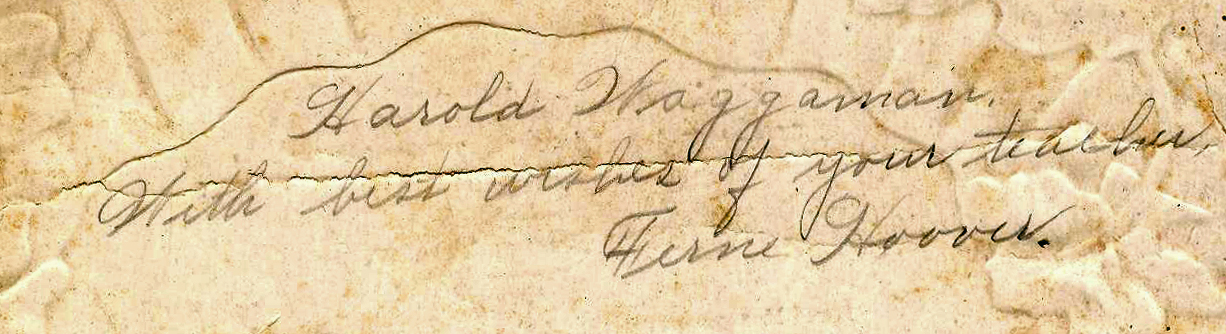 Harold Waggaman.
With best wishes of your teacher,
Ferne Hoover.